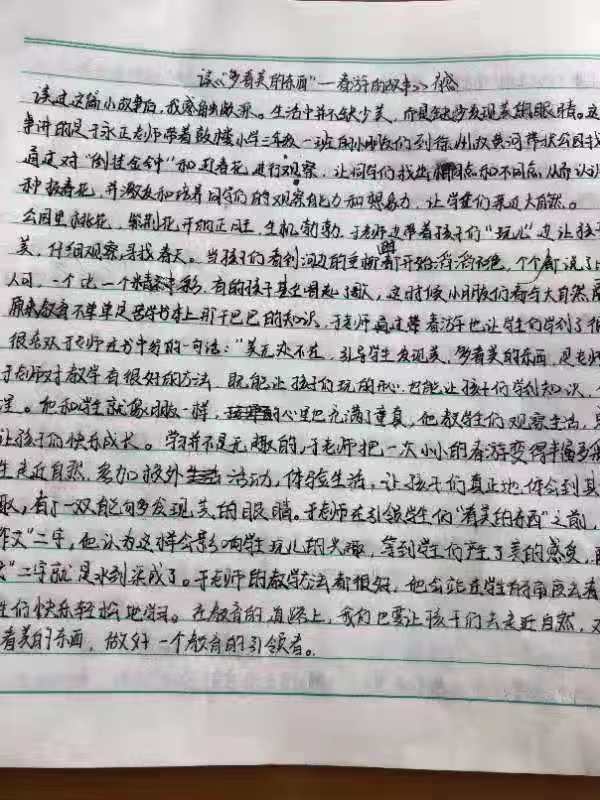 读《"多看美的东西"—春游的故事》有感
读过这篇小故事后,我感触颇深。生活中并不缺少美,而是缺少发现美的眼睛。这
事讲的是于永正老师带着鼓楼小学三年级一班的小朋友们到徐州故黄河带状公园找
通过对"倒挂金钟"和迎春花进行观察,让同学们找出相同点和不同点,从而认识
种报春花,并激发和培养同学们的观察能力和想象力,让学生们亲近大自然。
公园里桃花,紫荆花开的正旺,生机勃勃,于老师边带着孩子们"玩儿"边让孩子
美,仔细观察,寻找春天。当孩子们看到河边的垂柳时都开始滔滔不绝,个个都说了
人问,一个比一个精彩,有的孩子甚至唱起了歌,这时候小朋友们与大自然
原来教育不单单是书本上那干巴巴的知识,于老师通过带春游也让学生们学到了很
很喜欢于老师在书中写的一句话:"美无处不在,引导学生发现美,多看美的东西,是老师
于老师对教学有很好的方法,既能让孩子们玩的开心,也能让孩子们学到知识,
里。他和学生就像朋友一样,心里也充满了童真,他教学生们观察生活,
让孩子们快乐成长。学习并不是无趣的,于老师把一次小小的春游变得丰富多
生走近自然,参加校外活动,体验生活,让孩子们真正地体会到其
取,有了一双能向多发现美的眼睛。于老师在引领学生们"看美的东西"之前,
作文"二字,他认为这样会影响学生玩儿的兴趣,等到学生们产生了美的感受,
"二字就是水到渠成了。于老师的教学方法都很好,他会站在学生的角度去看
生们快乐轻松地学习。在教育的道路上,我们也要让孩子们去走近自然,
看美的东西,做好一个教育的引领者。